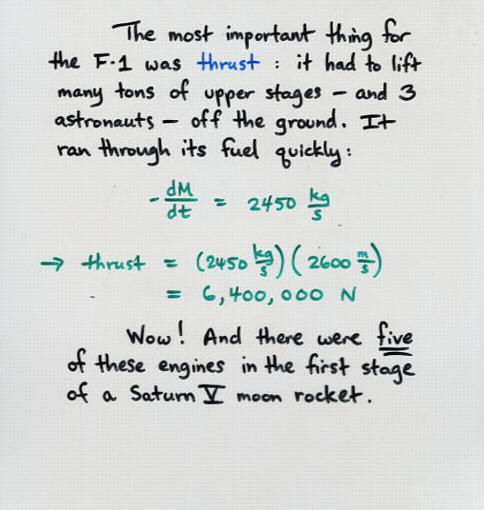 The most important thing for
the F-1 was thrust : it had to lift
many tons of upper stages - and 3
astronauts - off the ground. It
ran through its fuel quickly:
- dM/dt = 2450 kg/s
→ thrust = (2450 kg/s)(2600 m/s)
= 6,400,000 N
Wow! And there were five
of these engines in the first stage
of a Saturn V moon rocket.